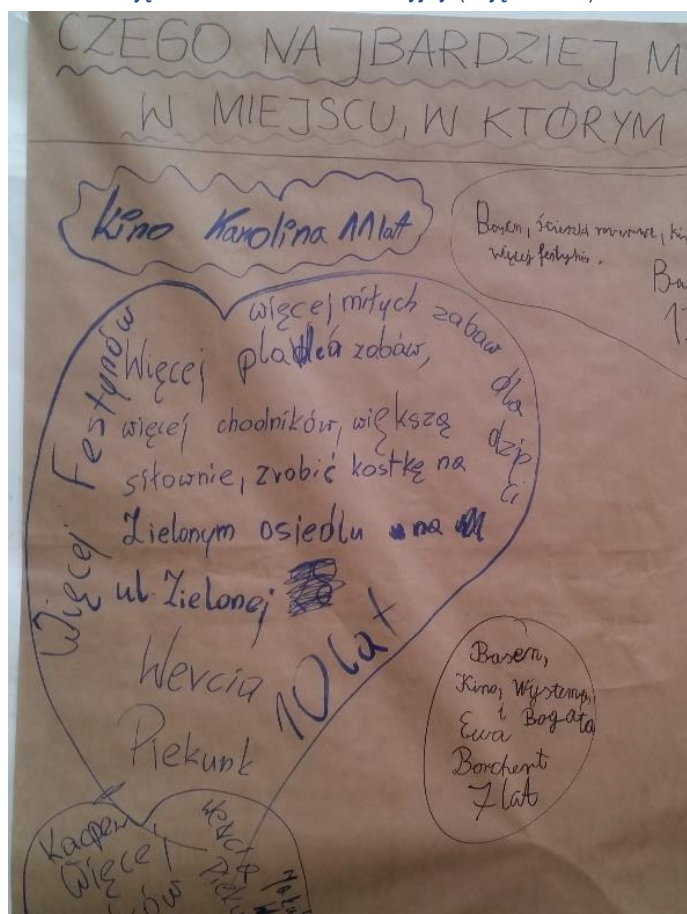 CZEGO NAJBARDZIEJ M
W MIEJSCU, W KTÓRYM
Kino Karolina 11 lat
Basen, ścieżki rowerowe, kin
więcej festynów.
Ba
1
Więcej Festynów
więcej miłych zabaw dla dzieci
Więcej placów zabaw,
więcej chodników, większą
siłownie, zrobić kostkę na
Zielonym osiedlu na
ul. Zielonej
Wercia
Piekunt
10 lat
Basen,
Kino, Występy,
i
Ewa Bogata
Borchert
7 lat
Kacper
Więcej